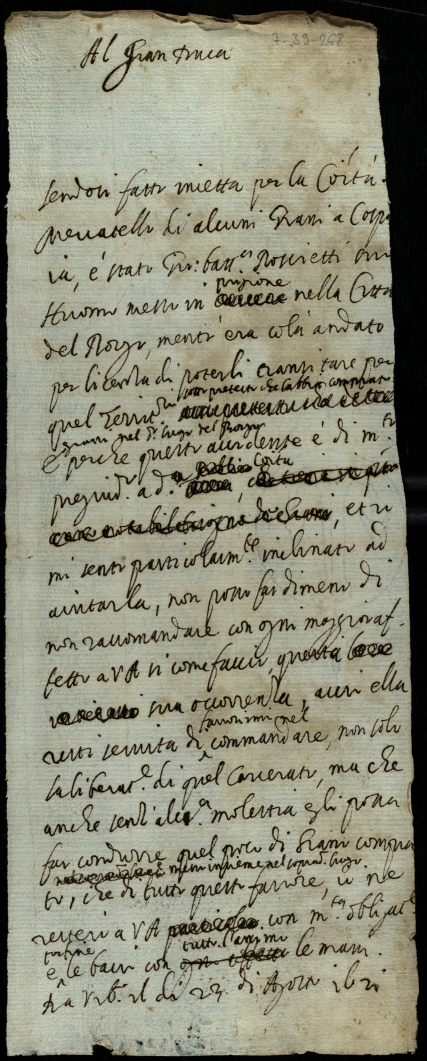 7-39-268
Al Gran Duca
Sendosi fatto incetta per la Co:ità
Mercatello di alcuni Grani a Cospa
ia, è stato Gio: batt.a
Huomo messo in prigione nella Città
del Borgo, mentr'era colà andato
per licenza di poterli transitare per
quel Territ.o sotto pretesto che l'abbia comprato
grani nel d.o luogo del Borgo
E perche questo accidente è di m.to
pregiud.o a d.a Co:ità
et io
mi sento particolarm.te inclinato ad
aiutarla, non posso far dimeno di
non raccomandare con ogni maggior af-
fetto a VA si come faccio, questa
sua occorrenza, acciò ella
resti servita di favorirmi nel commandare, non solo
la liberat.e di quel Carcerato, ma che
anche senz'alc.a molestia egli possa
far condurre quel poco di Grano compra
to, che di tutto questo favore, io ne
resterò a VA con m.to obligat.o
e le bacio con tutto l'animo le mani.
il dì 23 di Agosto 1621